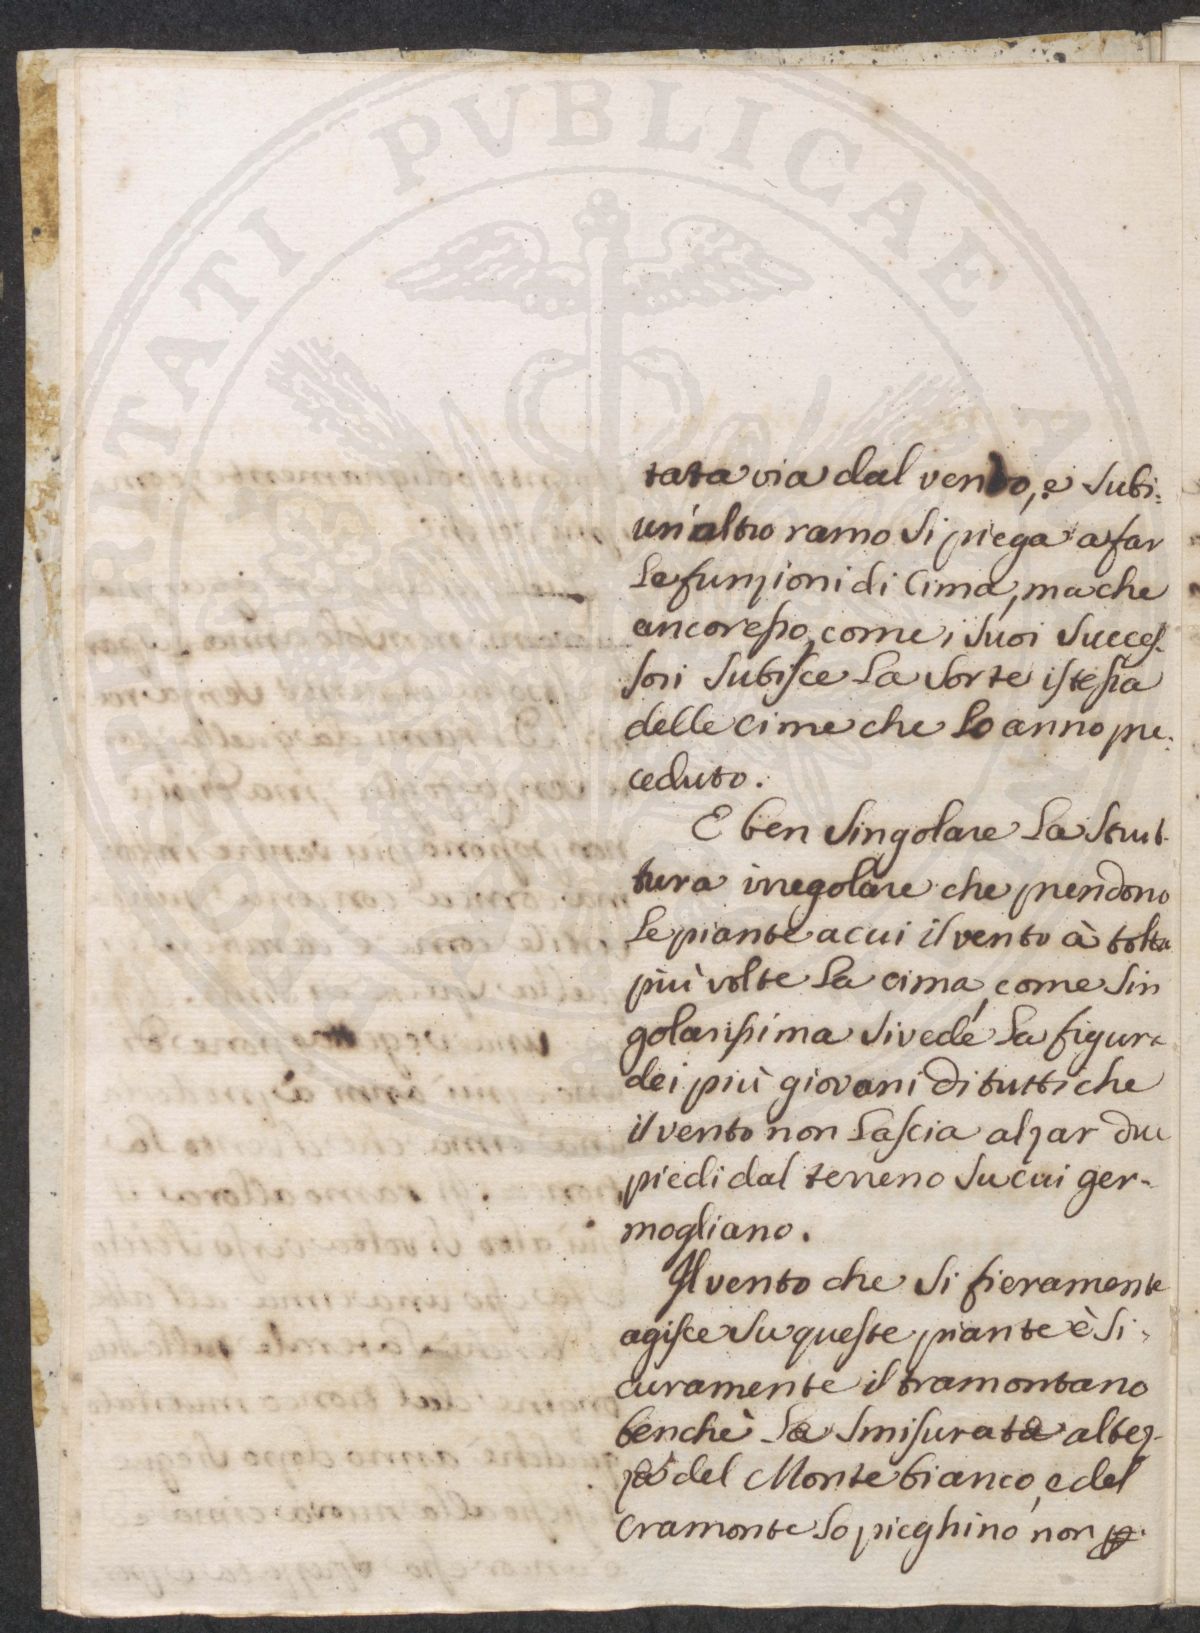 PVBLICAE
tata via dal vento, e subi:
un'altro ramo si piega a far
le funzioni di Cima, ma che
ancor esso, come i suoi succes-
sori subisce la sorte istessa
delle cime che lo anno pre:
ceduto.
E ben singolare la strut-
tura irregolare che prendono
le piante a cui il vento à tolta
più volte la cima, come sin
golarissima si vede la figura
dei più giovani di tutti che
il vento non lascia alzar due
piedi dal terreno su cui ger-
mogliano.
Il vento che si fieramente
agisce su queste piante è si-
curamente il tramontano
benchè la smisurata altez-
za del Monte bianco, e del
Cramonte lo pieghino, non